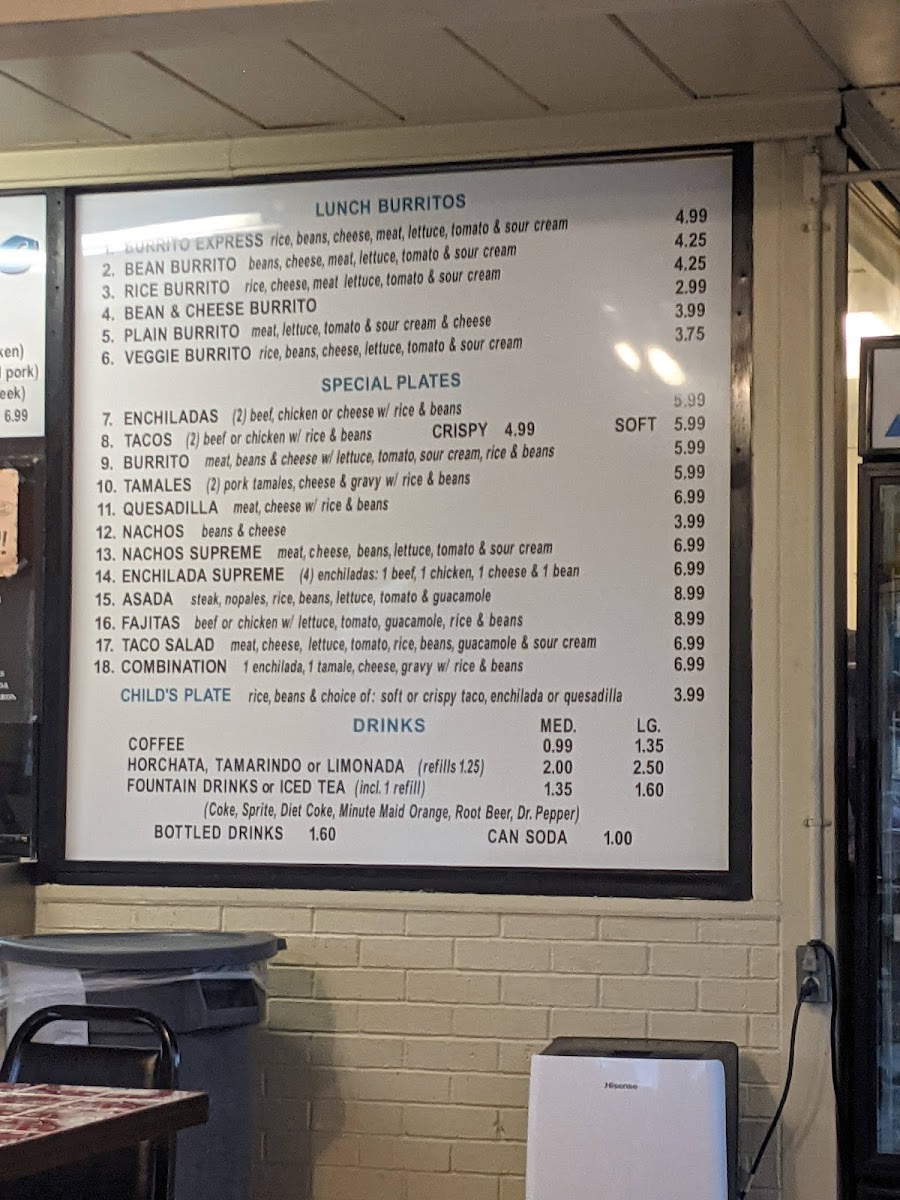 ken)
pork)
eek)
6.99
LUNCH BURRITOS
1. BURRITO EXPRESS rice, beans, cheese, meat, lettuce, tomato & sour cream 4.99
2. BEAN BURRITO beans, cheese, meat, lettuce, tomato & sour cream 4.25
3. RICE BURRITO rice, cheese, meat lettuce, tomato & sour cream 4.25
4. BEAN & CHEESE BURRITO 2.99
5. PLAIN BURRITO meat, lettuce, tomato & sour cream & cheese 3.99
6. VEGGIE BURRITO rice, beans, cheese, lettuce, tomato & sour cream 3.75
SPECIAL PLATES
7. ENCHILADAS (2) beef, chicken or cheese w/ rice & beans 5.99
8. TACOS (2) beef or chicken w/ rice & beans CRISPY 4.99 SOFT 5.99
9. BURRITO meat, beans & cheese w/ lettuce, tomato, sour cream, rice & beans 5.99
10. TAMALES (2) pork tamales, cheese & gravy w/ rice & beans 5.99
11. QUESADILLA meat, cheese w/ rice & beans 6.99
12. NACHOS beans & cheese 3.99
13. NACHOS SUPREME meat, cheese, beans, lettuce, tomato & sour cream 6.99
14. ENCHILADA SUPREME (4) enchiladas: 1 beef, 1 chicken, 1 cheese & 1 bean 6.99
15. ASADA steak, nopales, rice, beans, lettuce, tomato & guacamole 8.99
16. FAJITAS beef or chicken w/ lettuce, tomato, guacamole, rice & beans 8.99
17. TACO SALAD meat, cheese, lettuce, tomato, rice, beans, guacamole & sour cream 6.99
18. COMBINATION 1 enchilada, 1 tamale, cheese, gravy w/ rice & beans 6.99
CHILD'S PLATE rice, beans & choice of: soft or crispy taco, enchilada or quesadilla 3.99
DRINKS MED. LG.
COFFEE 0.99 1.35
HORCHATA, TAMARINDO or LIMONADA (refills 1.25) 2.00 2.50
FOUNTAIN DRINKS or ICED TEA (incl. 1 refill) 1.35 1.60
(Coke, Sprite, Diet Coke, Minute Maid Orange, Root Beer, Dr. Pepper)
BOTTLED DRINKS 1.60 CAN SODA 1.00
Hisense